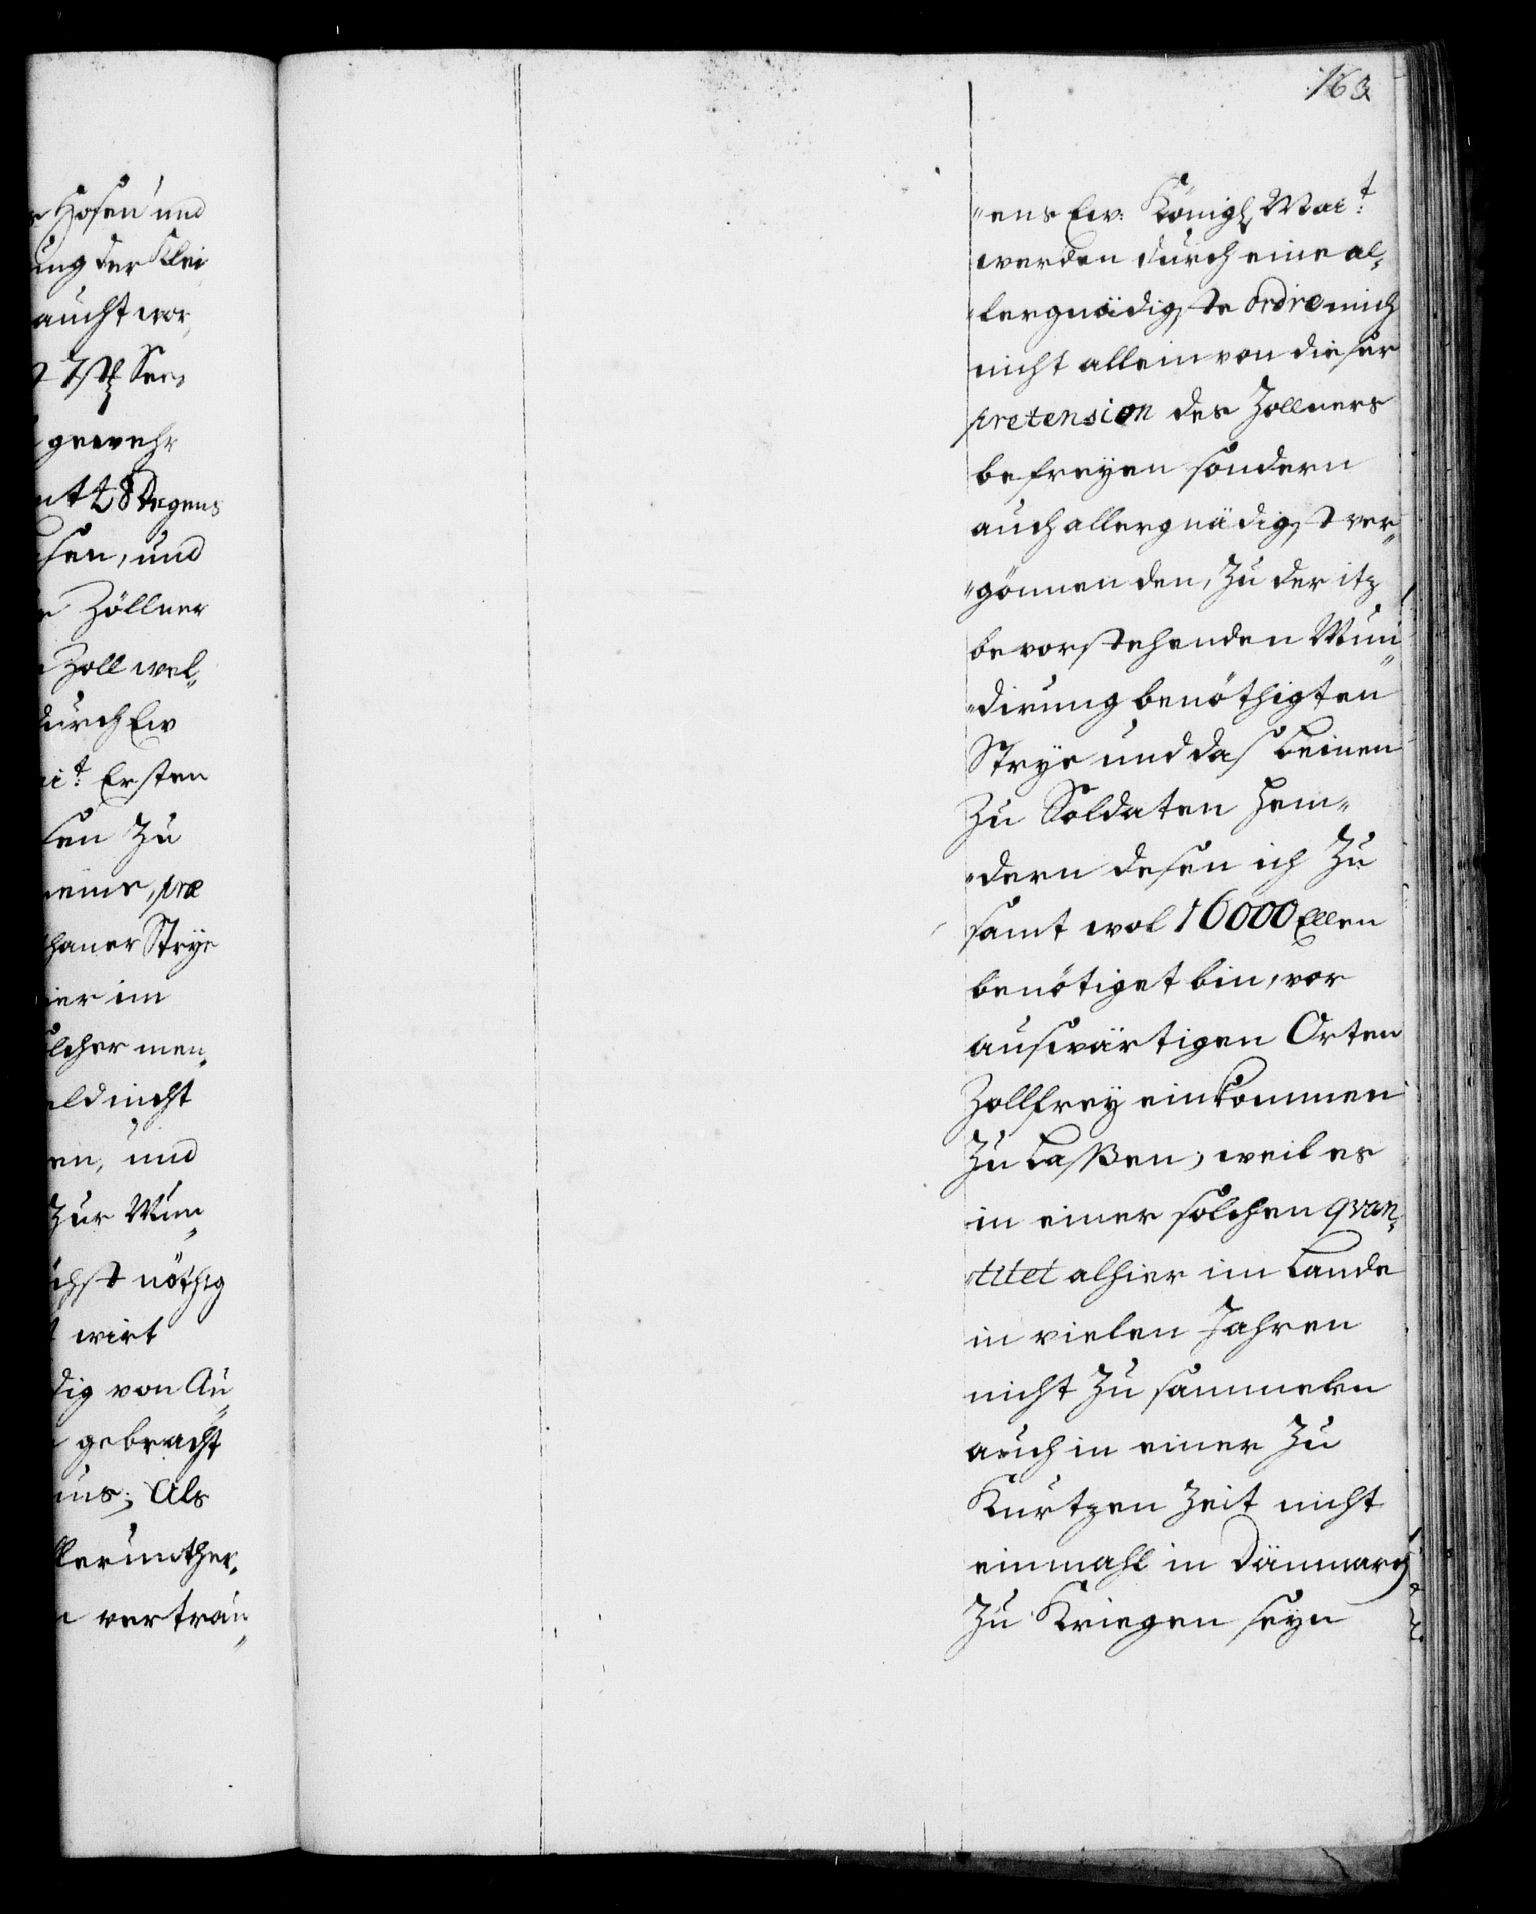 163
r Hosen und
ung der Klei
aucht wor„
gewehr
48 Degens
sen, und
r Zöllner
Zoll wel„
durch Ew
it: Ersten
sen zu
eine, præ
haner Strye
ier im
olcher men„
eld nicht
en, und
zur Mun„
chst nöthig
wirt
dig von Au„
gebracht
uns; Als
n vertrau„
„ens Ew: Königl Mait:
werden durch eine al„
„lergnädigste ordre mich
nicht allein von dieser
pretension des Zollners
befreyen sondern
auch allergnädigst ver„
„gönnen den, zu der itz
bevorstehenden Mun„
„dirung benöthigten
Strye und das Leinen
zu Soldaten Hem„
„dern desen ich zu
samt wol 16000 Ellen
benötiget bin, vor
auswärtigen Orten
Zollfrey einkommen
zu Laßen, weil es
in einer solchen qvan„
„titet alhier im Lande
in vielen Jahren
nicht zu sammeln
auch in einer zu
Kurtzen Zeit nicht
einmahl in Dänmarch
zu Kriegen seyn